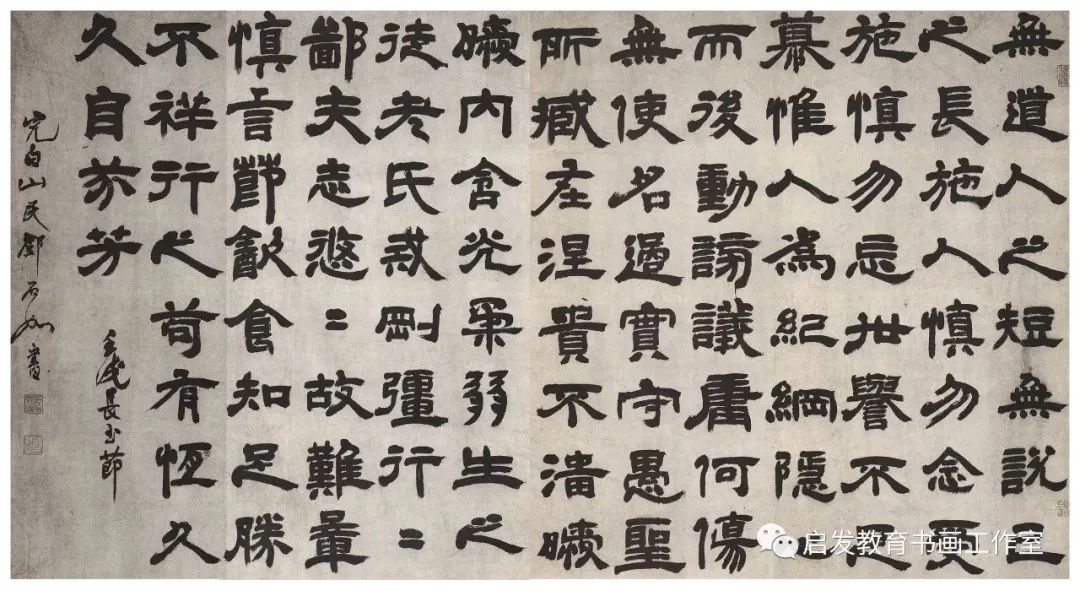 無道人之短無說己
之長施人慎勿念受
施慎勿忘世譽不足
慕惟人為紀綱隱
而後動謗議庸何傷
無使名過實守愚聖
所臧在涅貴不淄曖
曖內含光柔弱生之
徒老氏戒剛彊行〻
鄙夫志悠〻故難量
慎言節飲食知足勝
不祥行之苟有恆久
久自芬芳
長至節
完白山民鄧石如書
启发教育书画工作室